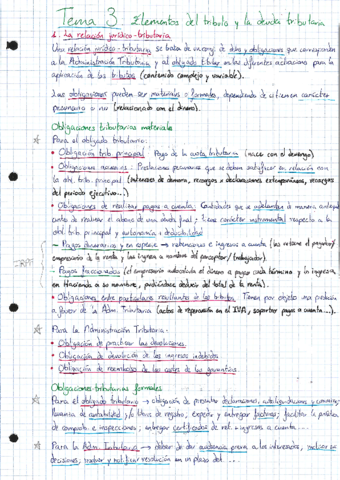 Tema 3: Elementos del tributo y la deuda tributaria
1. La relación jurídico-tributaria
Una relación jurídico-tributaria se basa de un conj. de dchos y obligaciones que corresponden
a la Administración Tributaria y al obligado tributario en las diferentes actuaciones para la
aplicación de los tributos (contenido complejo y variable).
Las obligaciones pueden ser materiales o formales, dependiendo de si tienen carácter
pecuniario o no (relacionado con el dinero).
Obligaciones tributarias materiales
Para el obligado tributario:
• Obligación trib. principal: Pago de la cuota tributaria (nace con el devengo)
• Obligaciones accesorias: Prestaciones pecuniarias que se deben satisfacer en relación con
la obl. trib. principal (intereses de demora, recargos x declaraciones extemporáneas, recargos
del periodo ejecutivo...)
• Obligaciones de realizar pagos a cuenta: Cantidades que se adelantan de manera anticipada
antes de realizar el abono de una deuda final; tiene carácter instrumental respecto a la
obl. trib. principal y autonomía
– Pagos dinerarios y en especie → retenciones e ingresos a cuenta (las retiene el pagador/
empresario de la renta y las ingresa a nombre del perceptor/trabajador).
IRPF
– Pagos fraccionados (el empresario autocalcula el dinero a pagar cada trimestre y lo ingresa
en Hacienda a su nombre, pudiéndose deducir del total de la renta).
• Obligaciones entre particulares resultantes de los tributos: Tienen por objeto una prestación
a favor de la Adm. Tributaria (actos de repercusión en el IVA, soportar pagos a cuenta...).
Para la Administración Tributaria:
• Obligación de practicar las devoluciones
• Obligación de devolución de los ingresos indebidos
• Obligación de reembolso de los costes de las garantías
Obligaciones tributarias formales
Para el obligado tributario → obligación de presentar declaraciones, autoliquidaciones y
llevanza de contabilidad y/o libros de registro, expedir y entregar facturas, facilitar la práctica
de comprob. e inspecciones, entregar certificados de ret. e ingresos a cuenta...
Para la Adm. Tributaria → deber de dar audiencia previa a los interesados, motivar su
decisiones, y notificar resolución en un plazo det....